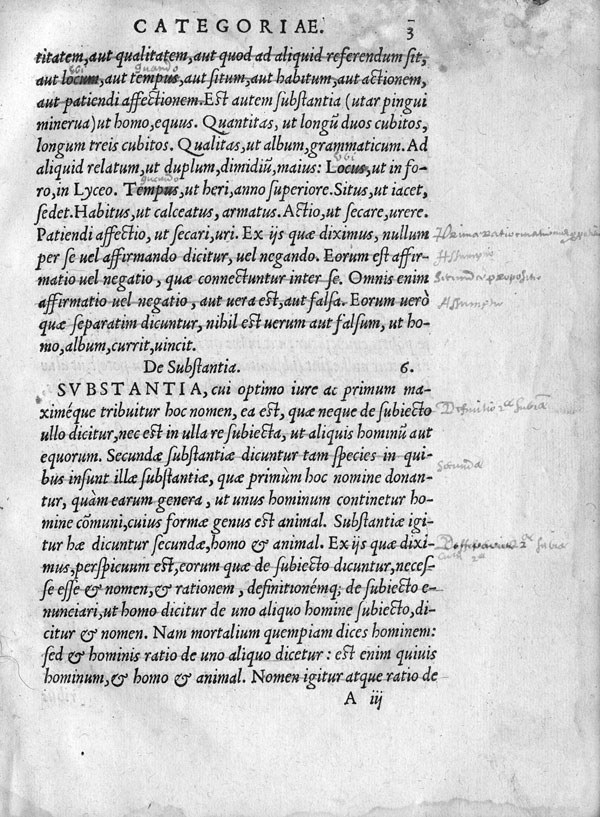 CATEGORIAE. 3
titatem, aut qualitatem, aut quod ad aliquid referendum sit,
ubi quando
aut locum, aut tempus, aut situm, aut habitum, aut actionem,
aut patiendi affectionem. Est autem substantia (utar pingui
minerua) ut homo, equus. Quantitas, ut longũ duos cubitos,
longum treis cubitos. Qualitas, ut album, grammaticum. Ad
aliquid relatum, ut duplum, dimidiũ, maius: Locus, ut in fo-
ubi
quando
ro, in Lyceo. Tempus, ut heri, anno superiore. Situs, ut iacet,
sedet. Habitus, ut calceatus, armatus. Actio, ut secare, urere.
Patiendi affectio, ut secari, uri. Ex ijs quæ diximus, nullum
Prima
per se uel affirmando dicitur, uel negando. Eorum est affir-
matio uel negatio, quæ connectuntur inter se. Omnis enim
Secunda
affirmatio uel negatio, aut uera est, aut falsa. Eorum uerò
Assumptio
quæ separatim dicuntur, nihil est uerum aut falsum, ut ho-
mo, album, currit, uincit.
De Substantia. 6.
SVBSTANTIA, cui optimo iure ac primum ma-
ximéque tribuitur hoc nomen, ea est, quæ neque de subiecto
Definitio
ullo dicitur, nec est in ulla re subiecta, ut aliquis hominũ aut
equorum. Secundæ substantiæ dicuntur tam species in qui-
bus insunt illæ substantiæ, quæ primùm hoc nomine donan-
Secunda
tur, quàm earum genera, ut unus hominum continetur ho-
mine cõmuni, cuius formæ genus est animal. Substantiæ igi-
tur hæ dicuntur secundæ, homo & animal. Ex ijs quæ dixi-
mus, perspicuum est, eorum quæ de subiecto dicuntur, neces-
se esse & nomen, & rationem, definitionémq; de subiecto e-
nunciari, ut homo dicitur de uno aliquo homine subiecto, di-
citur & nomen. Nam mortalium quempiam dices hominem:
sed & hominis ratio de uno aliquo dicetur: est enim quiuis
hominum, & homo & animal. Nomen igitur atque ratio de
A iij